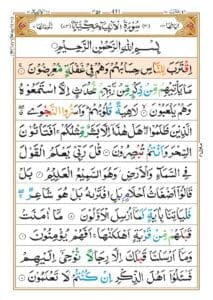 سُوْرَةُ الْاَنْۢبِيَآءِ مَكِّيَّةٌ
بِسْمِ اللّٰهِ الرَّحْمٰنِ الرَّحِيْمِ
اِقْتَرَبَ لِلنَّاسِ حِسَابُهُمْ وَهُمْ فِيْ غَفْلَةٍ مُّعْرِضُوْنَ
مَا يَاْتِيْهِمْ مِّنْ ذِكْرٍ مِّنْ رَّبِّهِمْ مُّحْدَثٍ اِلَّا اسْتَمَعُوْهُ
وَهُمْ يَلْعَبُوْنَ لَاهِيَةً قُلُوْبُهُمْ وَاَسَرُّوا النَّجْوَى
الَّذِيْنَ ظَلَمُوْا هَلْ هٰذَآ اِلَّا بَشَرٌ مِّثْلُكُمْ اَفَتَاْتُوْنَ
السِّحْرَ وَاَنْتُمْ تُبْصِرُوْنَ قٰلَ رَبِّيْ يَعْلَمُ الْقَوْلَ
فِي السَّمَآءِ وَالْاَرْضِ وَهُوَ السَّمِيْعُ الْعَلِيْمُ بَلْ
قَالُوْٓا اَضْغَاثُ اَحْلَامٍ بَلِ افْتَرٰىهُ بَلْ هُوَ شَاعِرٌ
فَلْيَاْتِنَا بِاٰيَةٍ كَمَآ اُرْسِلَ الْاَوَّلُوْنَ مَآ اٰمَنَتْ
قَبْلَهُمْ مِّنْ قَرْيَةٍ اَهْلَكْنٰهَا اَفَهُمْ يُؤْمِنُوْنَ
وَمَآ اَرْسَلْنَا قَبْلَكَ اِلَّا رِجَالًا نُّوْحِيْٓ اِلَيْهِمْ
فَسْـَٔلُوْٓا اَهْلَ الذِّكْرِ اِنْ كُنْتُمْ لَا تَعْلَمُوْنَ